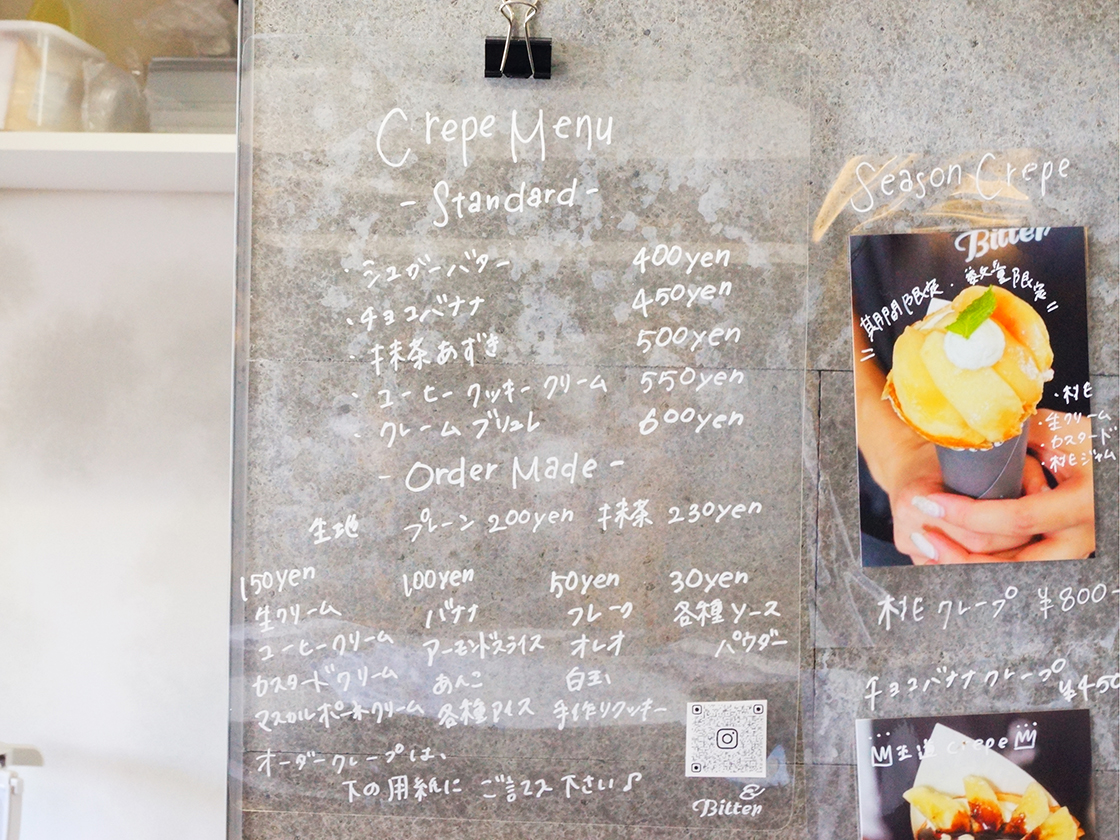 Crepe Menu
- Standard -
・シュガーバター 400yen
・チョコバナナ 450yen
・抹茶あずき 500yen
・コーヒークッキークリーム 550yen
・クレームブリュレ 600yen
- Order Made -
生地 プレーン 200yen 抹茶 230yen
150yen 100yen 50yen 30yen
生クリーム バナナ フレーク 各種ソース
コーヒークリーム アーモンドスライス オレオ パウダー
カスタードクリーム あんこ 白玉
マスカルポーネクリーム 各種アイス 手作りクッキー
オーダークレープは、
下の用紙に ご記入下さい♪
& Bitter
Season Crepe
Bitter
期間限定・数量限定
・桃
・生クリーム
・カスタード
・桃ジャム
桃クレープ ¥800
チョコバナナクレープ ¥450
王道 crepe